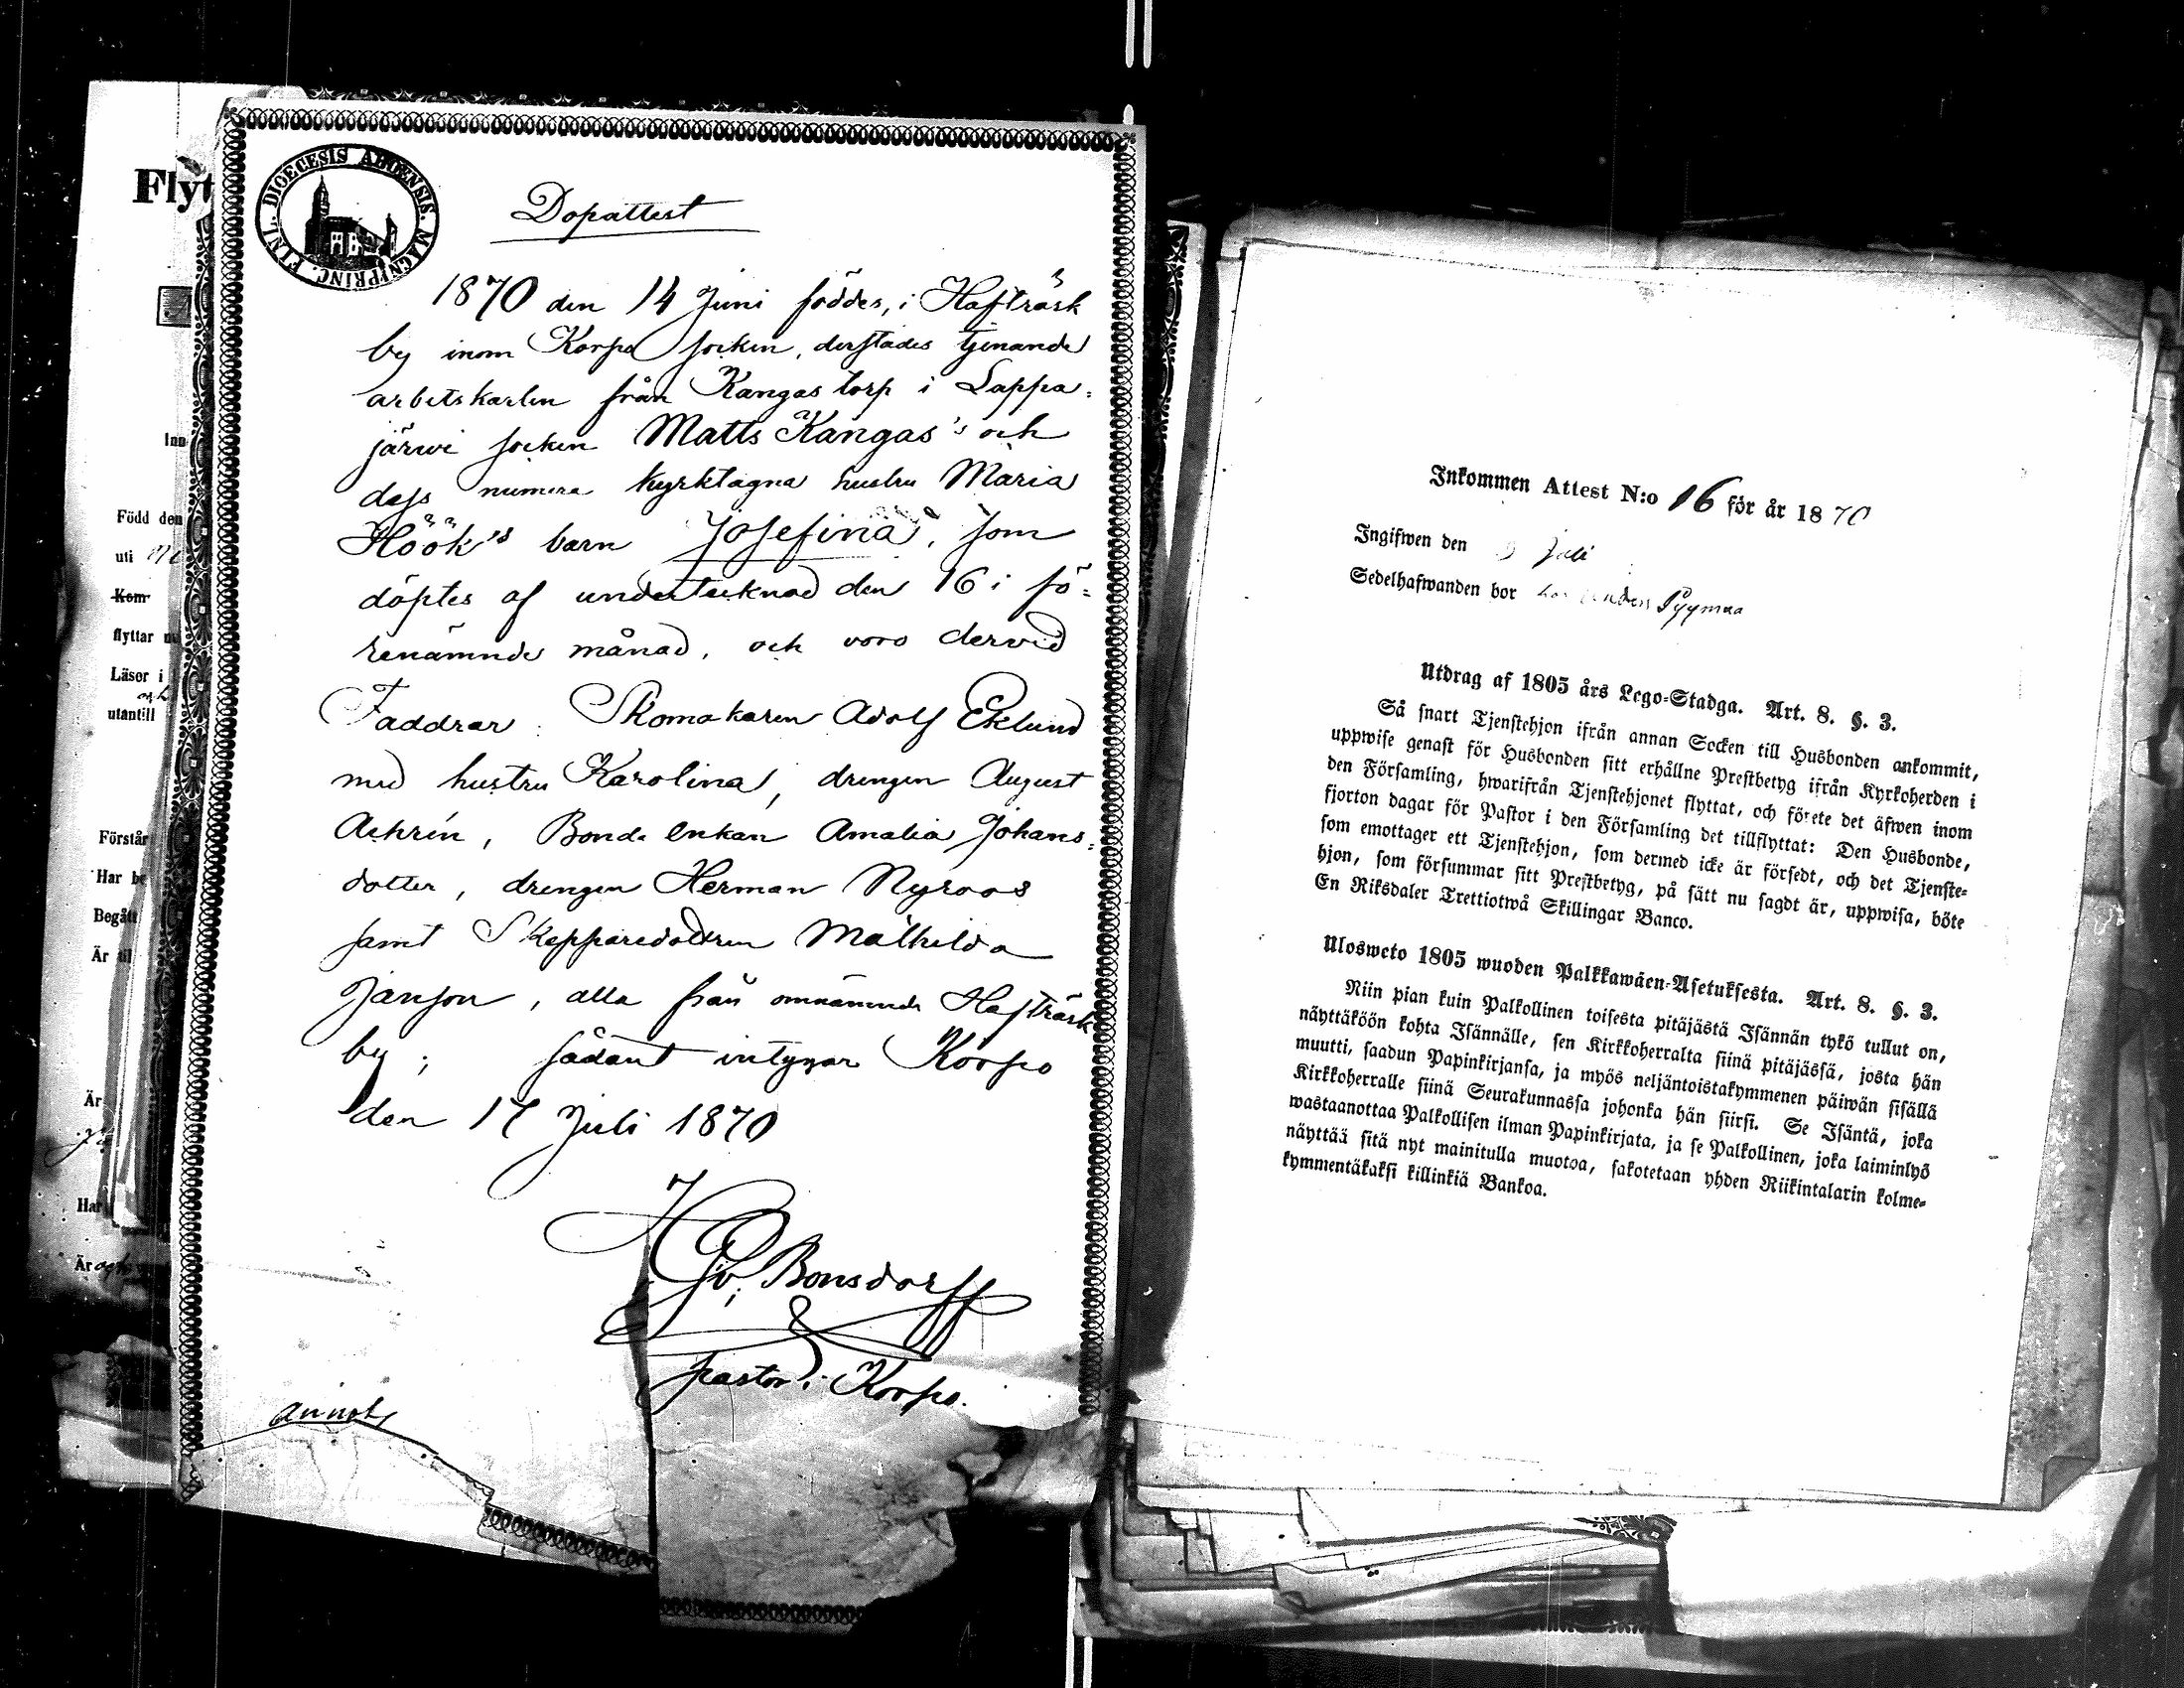 Flyt
Inn
Född den
uti
Kom
flyttar
Läser i
och
utantill
Förstår
Har be
Begått
Är til
Är
Har
Är
FINL. DIOECESIS ABOENSIS. MAGNIPRINC.
Dopattest
1870 den 14 Juni föddes, i Hafträsk
by inom Korpo socken, derstädes tjenande
arbetskarlen från Kangas torp i Lappa=
järwi socken Matts Kangas's och
dess numera kyrktagna hustru Maria
Höök's barn Josefina, som
döptes af undertecknad den 16 i fö=
renämnde månad, och voro dervid
Faddrar: Skomakaren Adolf Eklund
med hustru Karolina, drengen August
Achrén, Bonde enkan Amalia Johans=
dotter, drengen Herman Nyroos
samt Skepparedottren Mathilda
Janson, alla från omnämnde Hafträsk
by; sådant intygar Korpo
den 17 Juli 1870
Bonsdorff
pastor i Korpo.
annot
Inkommen Attest N:o 16 för år 1870
Ingifwen den Juli
Sedelhafwanden bor Pyymaa
Utdrag af 1805 års Lego-Stadga. Art. 8. §. 3.
Så snart Tjenstehjon ifrån annan Socken till Husbonden ankommit,
uppwise genast för Husbonden sitt erhållne Prestbetyg ifrån Kyrkoherden i
den Församling, hwarifrån Tjenstehjonet flyttat, och förete det äfwen inom
fjorton dagar för Pastor i den Församling det tillflyttat: Den Husbonde,
som emottager ett Tjenstehjon, som dermed icke är försedt, och det Tjenste-
hjon, som försummar sitt Prestbetyg, på sätt nu sagdt är, uppwisa, böte
En Riksdaler Trettiotwå Skillingar Banco.
Ulosweto 1805 wuoden Palkkawäen-Asetuksesta. Art. 8. §. 3.
Niin pian kuin Palkollinen toisesta pitäjästä Isännän tykö tullut on,
näyttäköön kohta Isännälle, sen Kirkkoherralta siinä pitäjässä, josta hän
muutti, saadun Papinkirjansa, ja myös neljäntoistakymmenen päiwän sisällä
Kirkkoherralle siinä Seurakunnassa johonka hän siirsi. Se Isäntä, joka
wastaanottaa Palkollisen ilman Papinkirjata, ja se Palkollinen, joka laiminlyö
näyttää sitä nyt mainitulla muotoa, sakotetaan yhden Riikintalarin kolme-
kymmentäkaksi killinkiä Bankoa.